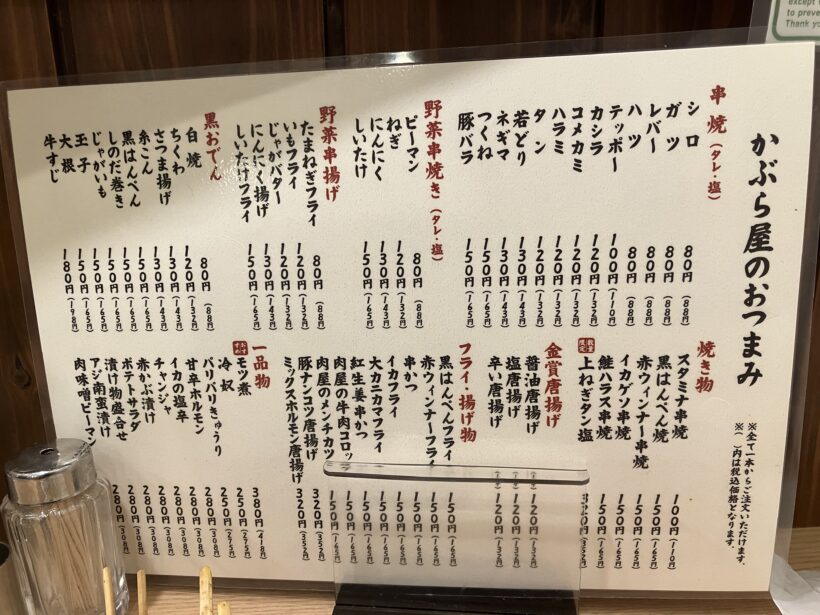 except
to preve
Thank yo
かぶら屋のおつまみ
※全て一本からご注文いただけます。
※( )内は税込価格となります。
串焼(タレ・塩)
シロ 80円(88円)
ガツ 80円(88円)
レバー 80円(88円)
ハツ 80円(88円)
テッポー 100円(110円)
カシラ 120円(132円)
コメカミ 120円(132円)
ハラミ 120円(132円)
タン 120円(132円)
若どり 130円(143円)
ネギマ 130円(143円)
つくね 150円(165円)
豚バラ 150円(165円)
野菜串焼き(タレ・塩)
ピーマン 80円(88円)
ねぎ 120円(132円)
にんにく 130円(143円)
しいたけ 150円(165円)
野菜串揚げ
たまねぎフライ 80円(88円)
いもフライ 120円(132円)
じゃがバター 120円(132円)
にんにく揚げ 130円(143円)
しいたけフライ 150円(165円)
黒おでん
白焼 80円(88円)
ちくわ 120円(132円)
さつま揚げ 130円(143円)
糸こん 130円(143円)
黒はんぺん 150円(165円)
しのだ巻き 150円(165円)
じゃがいも 150円(165円)
玉子 150円(165円)
大根 150円(165円)
牛すじ 180円(198円)
焼き物
スタミナ串焼 100円(110円)
黒はんぺん焼 150円(165円)
赤ウィンナー串焼 150円(165円)
イカゲソ串焼 150円(165円)
鮭ハラス串焼 150円(165円)
数量限定 上ねぎタン塩 320円(352円)
金賞唐揚げ
醤油唐揚げ 120円(132円)
塩唐揚げ 120円(132円)
辛い唐揚げ 120円(132円)
フライ・揚げ物
黒はんぺんフライ 150円(165円)
赤ウィンナーフライ 150円(165円)
串かつ 150円(165円)
イカフライ 150円(165円)
大カニカマフライ 150円(165円)
紅生姜串かつ 150円(165円)
肉屋の牛肉コロッケ 150円(165円)
肉屋のメンチカツ 150円(165円)
豚ナンコツ唐揚げ 320円(352円)
ミックスホルモン唐揚げ 320円(352円)
一品物
おすすめ モツ煮 380円(418円)
冷奴 250円(275円)
パリパリきゅうり 250円(275円)
甘辛ホルモン 280円(308円)
イカの塩辛 280円(308円)
チャンジャ 280円(308円)
赤かぶ漬け 280円(308円)
ポテトサラダ 280円(308円)
漬け物盛合せ 280円(308円)
アジ南蛮漬け
肉味噌ピーマン